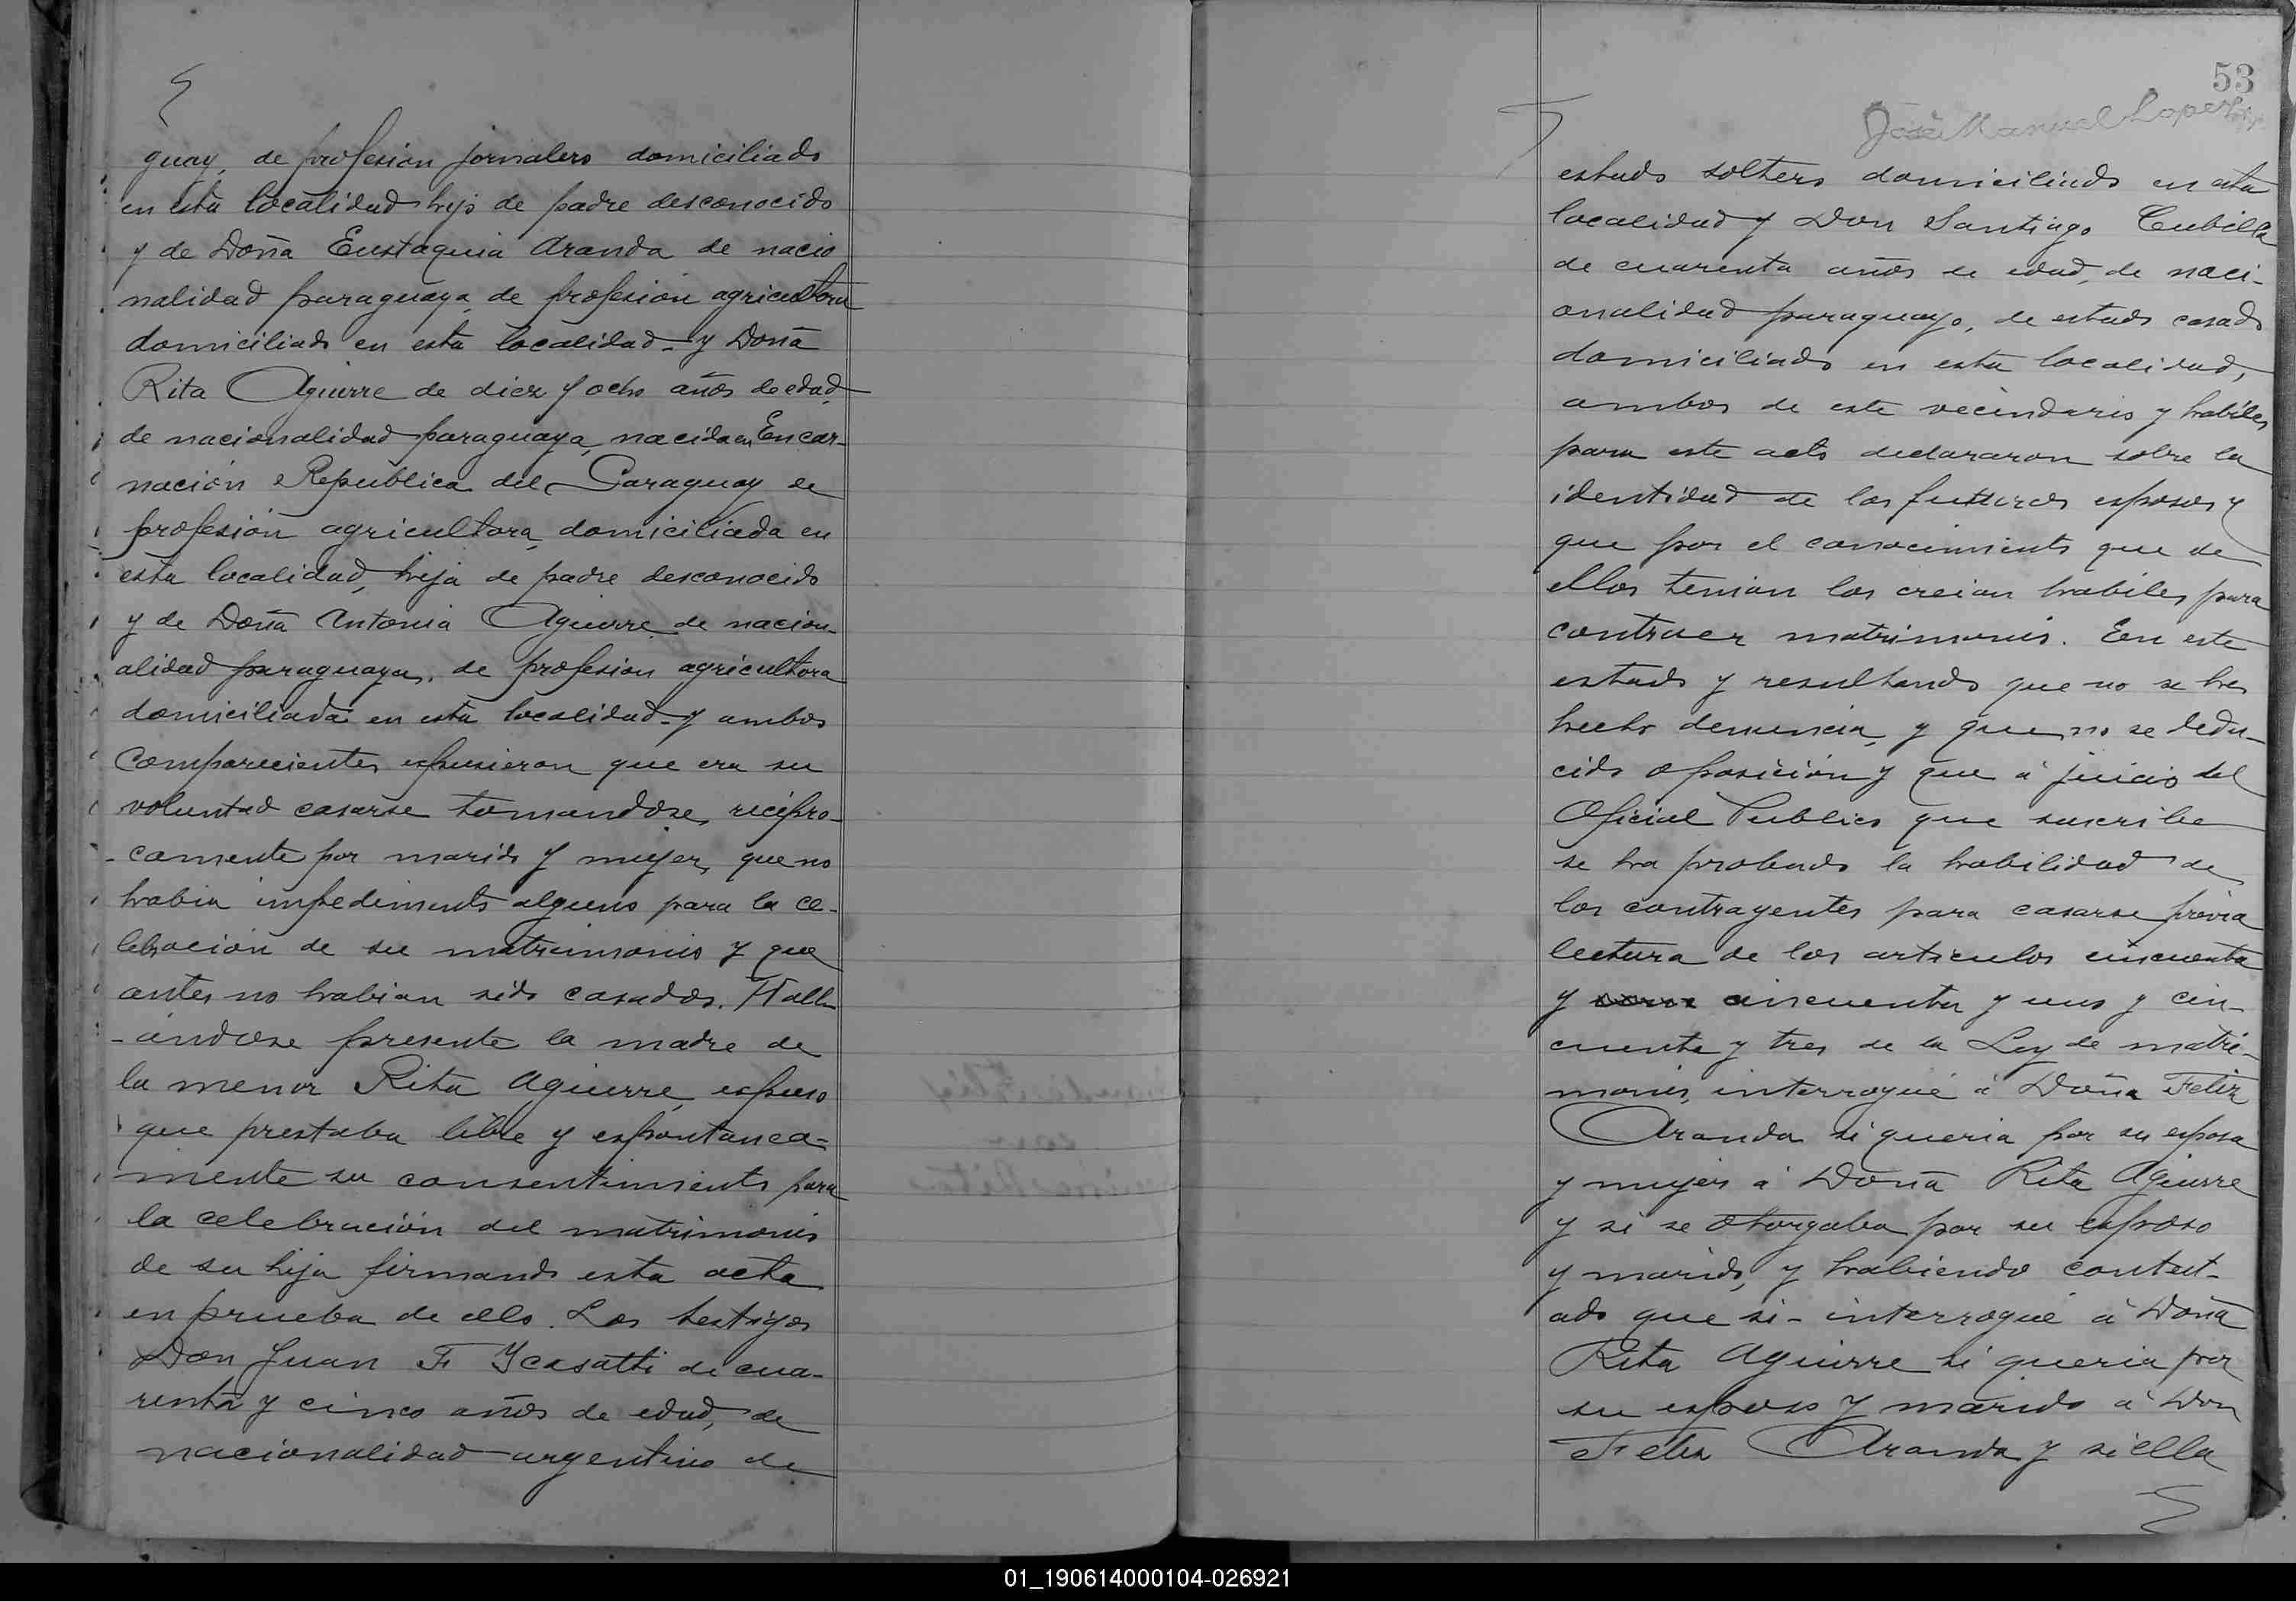 guay, de profesión jornalero domiciliado
en esta localidad hijo de padre desconocido
y de Doña Eustaquia Aranda de nacio
nalidad paraguaya, de profesión agricultora
domiciliado en esta localidad - y Doña
Rita Aguirre de diez y ocho años de edad,
de nacionalidad paraguaya, nacida en Encar-
nación Republica del Paraguay de
profesión agricultora, domiciliada en
esta localidad, hija de padre desconocido
y de Doña Antonia Aguirre de nacion-
alidad paraguaya, de profesión agricultora
domiciliada en esta localidad - y ambos
comparecientes expusieron que era su
voluntad casarse tomandose, recipro-
-camente por marido y mujer, que no
habia impedimento alguno para la ce-
lebración de su matrimonio y que
antes no habian sido casados. Hall-
-andose presente la madre de
la menor Rita Aguirre, expuso
que prestaba libre y espontanea-
mente su consentimiento para
la celebración del matrimonio
de su hija firmando esta acta
en prueba de ello. Los testigos
Don Juan F Ycasatti de cua-
renta y cinco años de edad, de
nacionalidad argentino de
53
José Manuel Lopez
estado soltero domiciliado en esta
localidad y Don Santiago Cubilla
de cuarenta años de edad, de naci-
onalidad paraguayo, de estado casado
domiciliado en esta localidad,
ambos de este vecindario y habiles
para este acto declararon sobre la
identidad de los futuros esposos y
que por el conocimiento que de
ellos tenian los creian habiles para
contraer matrimonio. En este
estado y resultando que no se ha
hecho denuncia, y que no se dedu-
cido oposición y que á juicio del
Oficial Publico que suscribe
se ha probado la habilidad de
los contrayentes para casarse previa
lectura de los articulos cincuenta
y cincuenta y uno y cin-
cuenta y tres de la Ley de matri-
monio, interrogué á Doña Feliz
Aranda si queria por su esposa
y mujer á Doña Rita Aguirre
y si se otorgaba por su esposo
y marido, y habiendo contest-
ado que si - interrogué á Doña
Rita Aguirre si queria por
su esposo y marido á Don
Feliz Aranda y si ella
01_190614000104-026921